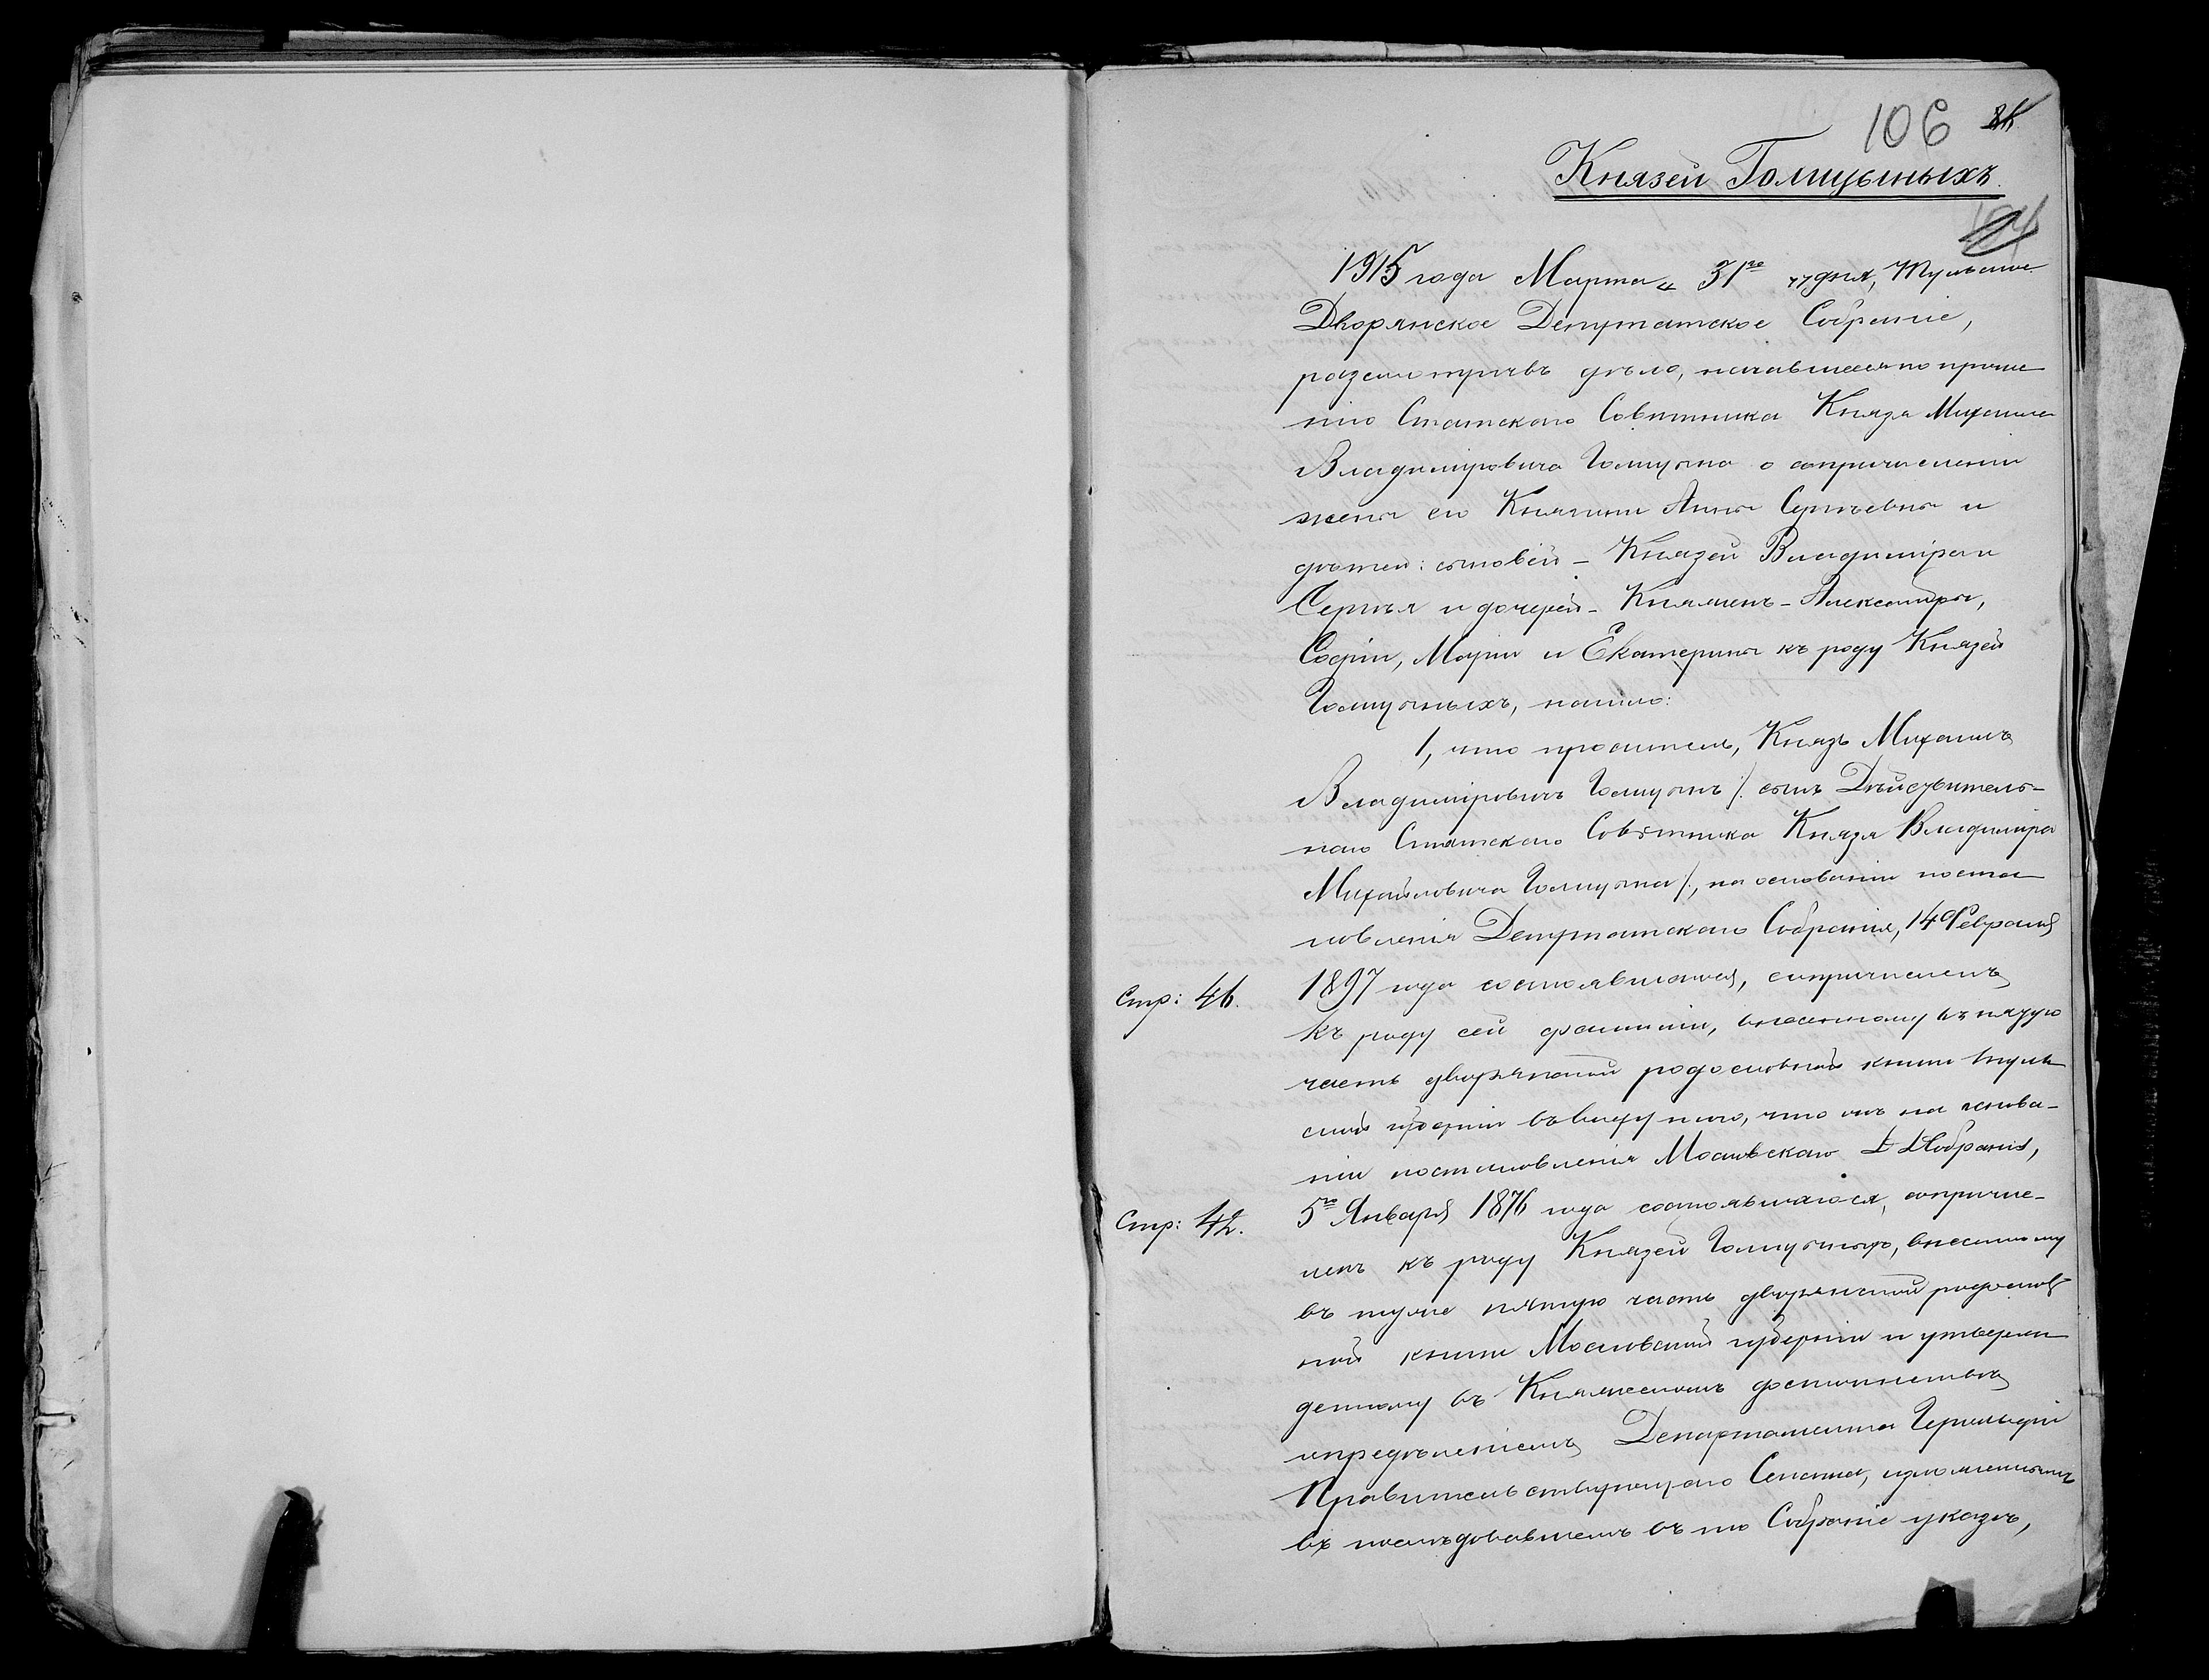 106
Князей Голицыныхъ.
1915 года Марта „ 31го „ дня, Тульское
Дворянское Депутатское Собраніе,
разсмотрѣвъ дѣло, начавшееся по проше-
нію Статскаго Совѣтника Князя Михаила
Владиміровича Голицына о сопричисленіи
жены его Княгини Анны Сергѣевны и
дѣтей: сыновей - Князей Владиміра и
Сергѣя и дочерей - Княженъ - Александры,
Софіи, Маріи и Екатерины къ роду Князей
Голицыныхъ, нашло:
1, что проситель, Князь Михаилъ
Владиміровичъ Голицынъ /: сынъ Дѣйствитель-
наго Статскаго Совѣтника Князя Владиміра
Михайловича Голицына /:, на основаніи поста-
новленія Депутатскаго Собранія, 14 Февраля
Стр: 46. 1897 года состоявшагося, сопричисленъ
къ роду сей фамиліи, внесенному въ пятую
часть дворянской родословной книги Туль-
ской губерніи въ виду того, что онъ на основа-
ніи постановленія Московскаго Д Д Собранія,
Стр: 42. 5го Января 1876 года состоявшагося, сопричис-
ленъ къ роду Князей Голицыныхъ, внесенному
въ туже пятую часть дворянской родослов-
ной книги Московской губерніи и утверж-
денному въ Княжескомъ достоинствѣ
опредѣленіемъ Департамента Герольдіи
Правительствующаго Сената, изложеннымъ
въ послѣдовавшемъ въ то Собраніе указѣ,